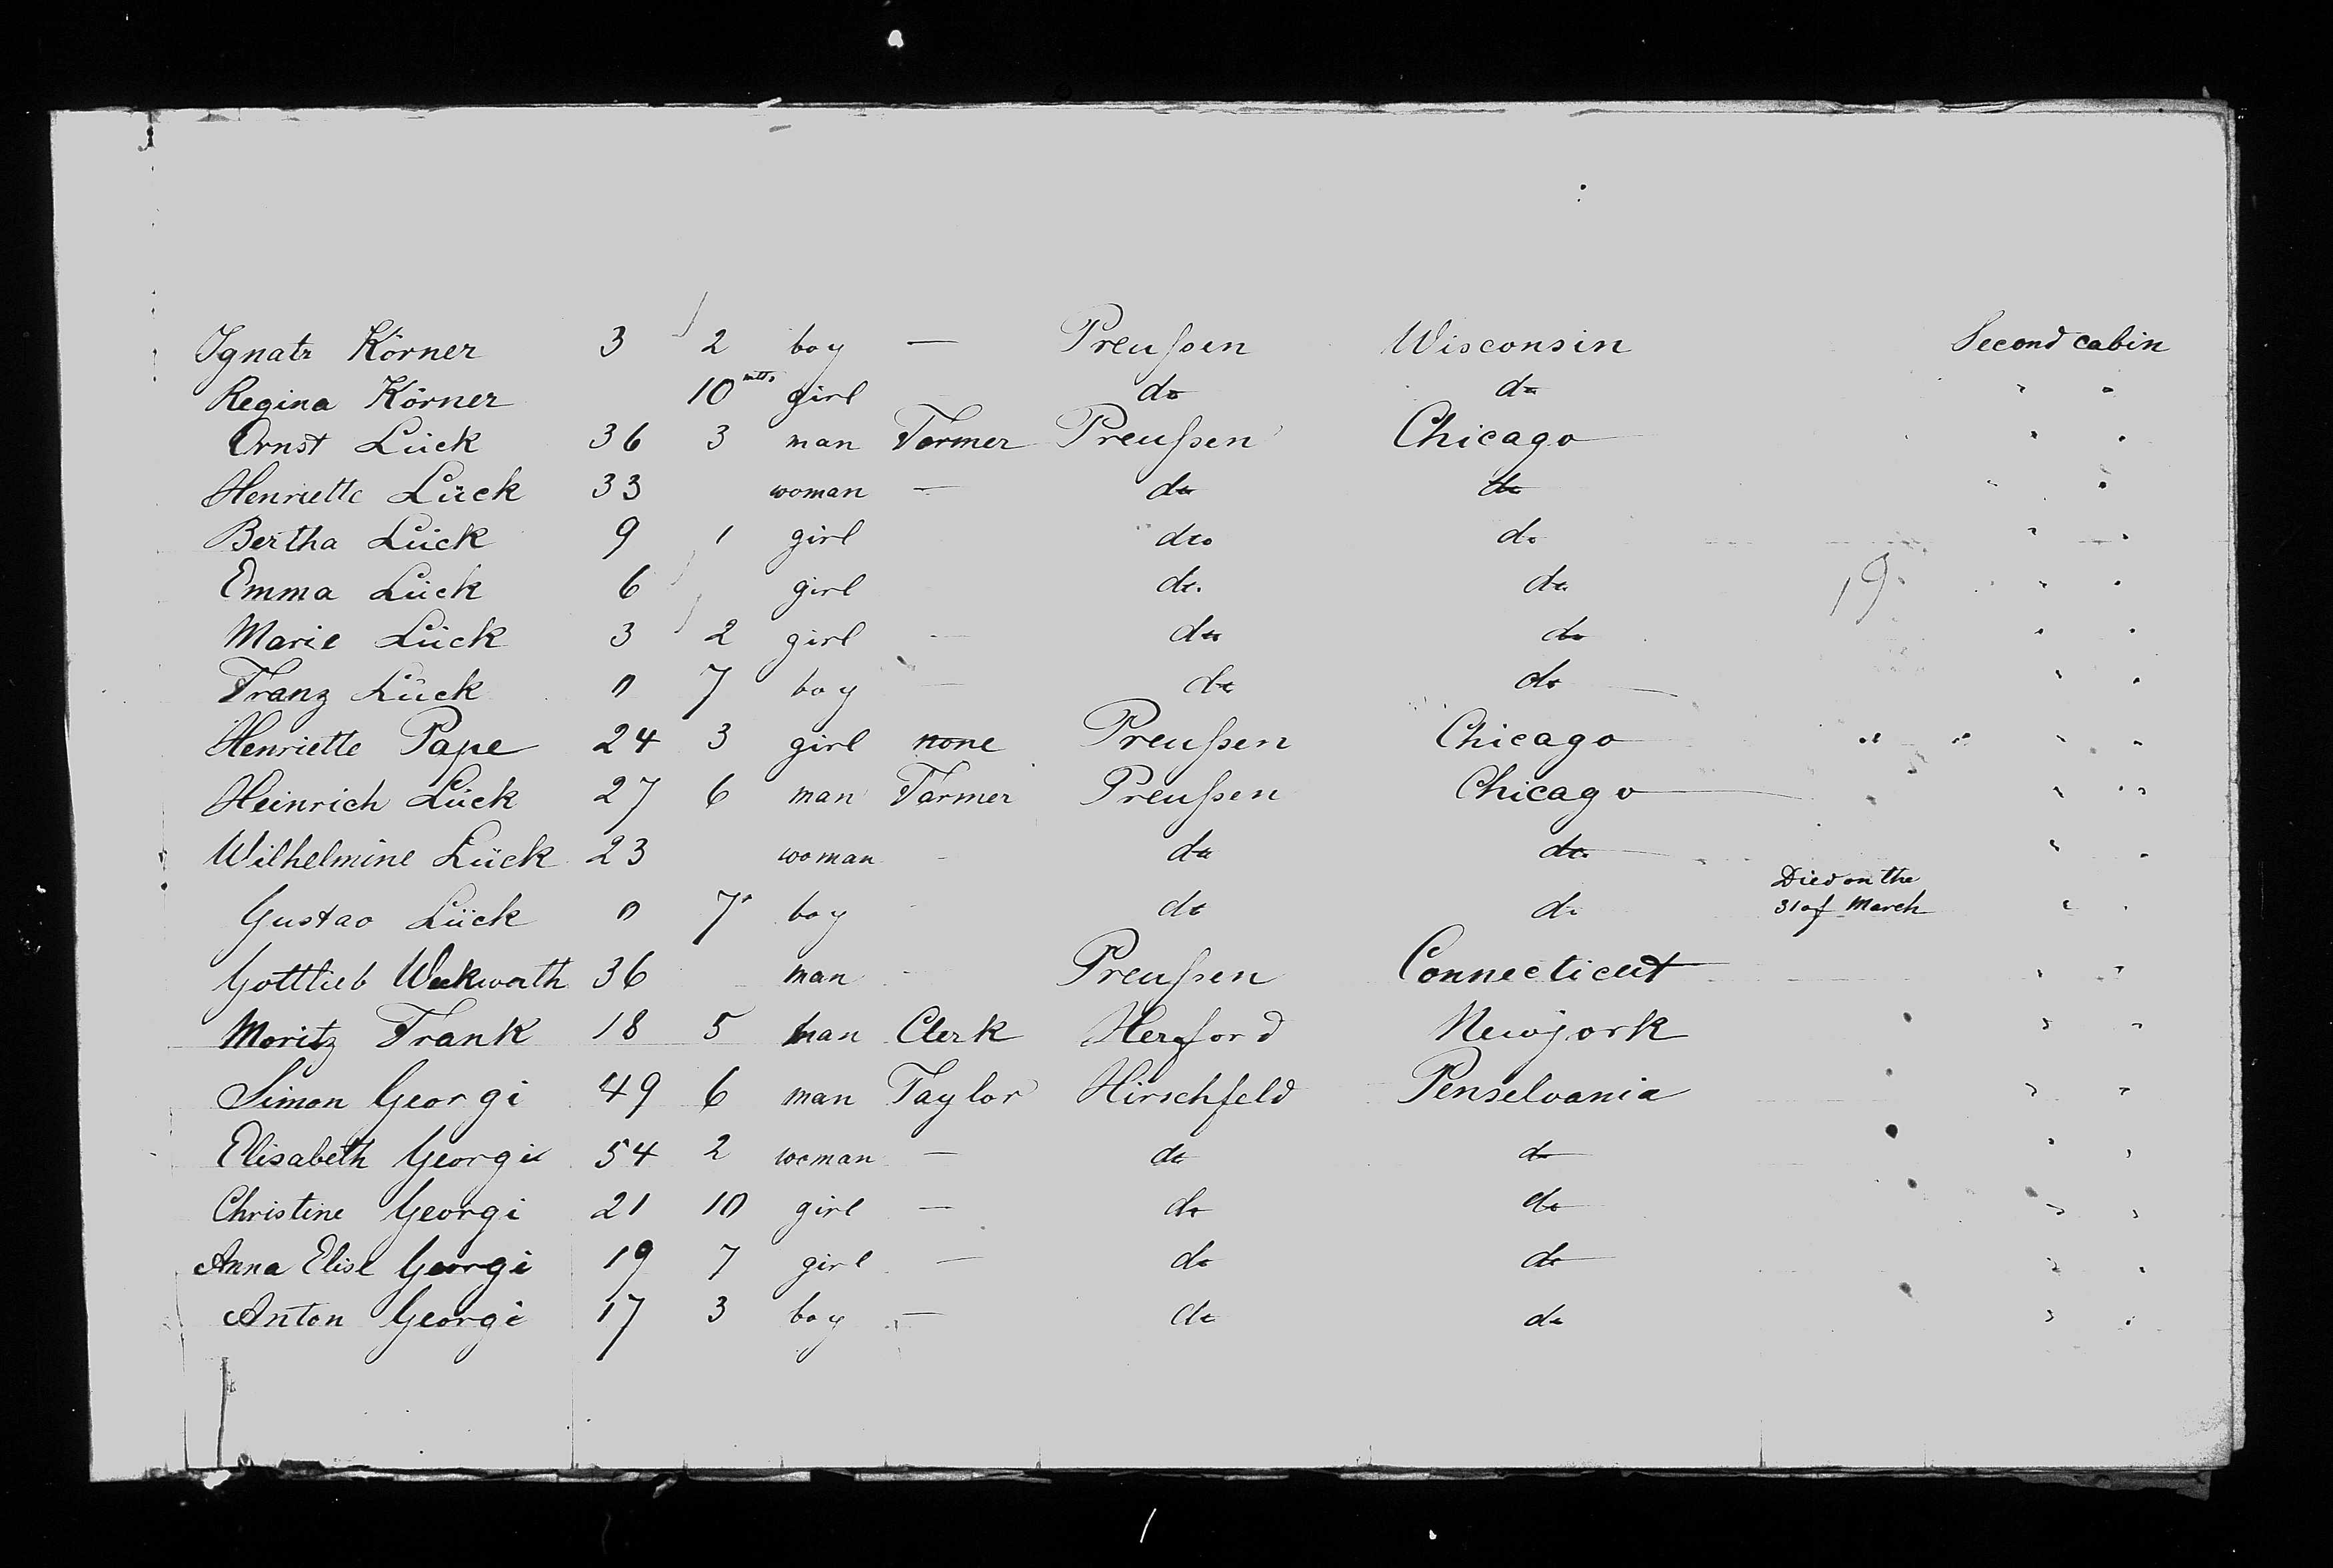 Ignatz Körner 3 2 boy — Preußen Wisconsin Second cabin
Regina Körner 10 mths girl do do " "
Ernst Lück 36 3 man Farmer Preußen Chicago " "
Henriette Lück 33 woman — do do " "
Bertha Lück 9 1 girl do do " "
Emma Lück 6 girl do do 19 " "
Marie Lück 3 2 girl — do do " "
Franz Lück 0 7 boy — do do " "
Henriette Pape 24 3 girl none Preußen Chicago " " " "
Heinrich Lück 27 6 man Farmer Preußen Chicago " "
Wilhelmine Lück 23 woman - do do " "
Gustav Lück 0 7 boy do do Died on the 31 of March " "
Gottlieb Weckwerth 36 man - Preußen Connecticut " "
Moritz Frank 18 5 man Clerk Herford Newjork " "
Simon Georgi 49 6 man Taylor Hirschfeld Penselvania " "
Elisabeth Georgi 54 2 woman — do do " "
Christine Georgi 21 10 girl — do do " "
Anna Elise Georgi 19 7 girl — do do " "
Anton Georgi 17 3 boy — do do " "